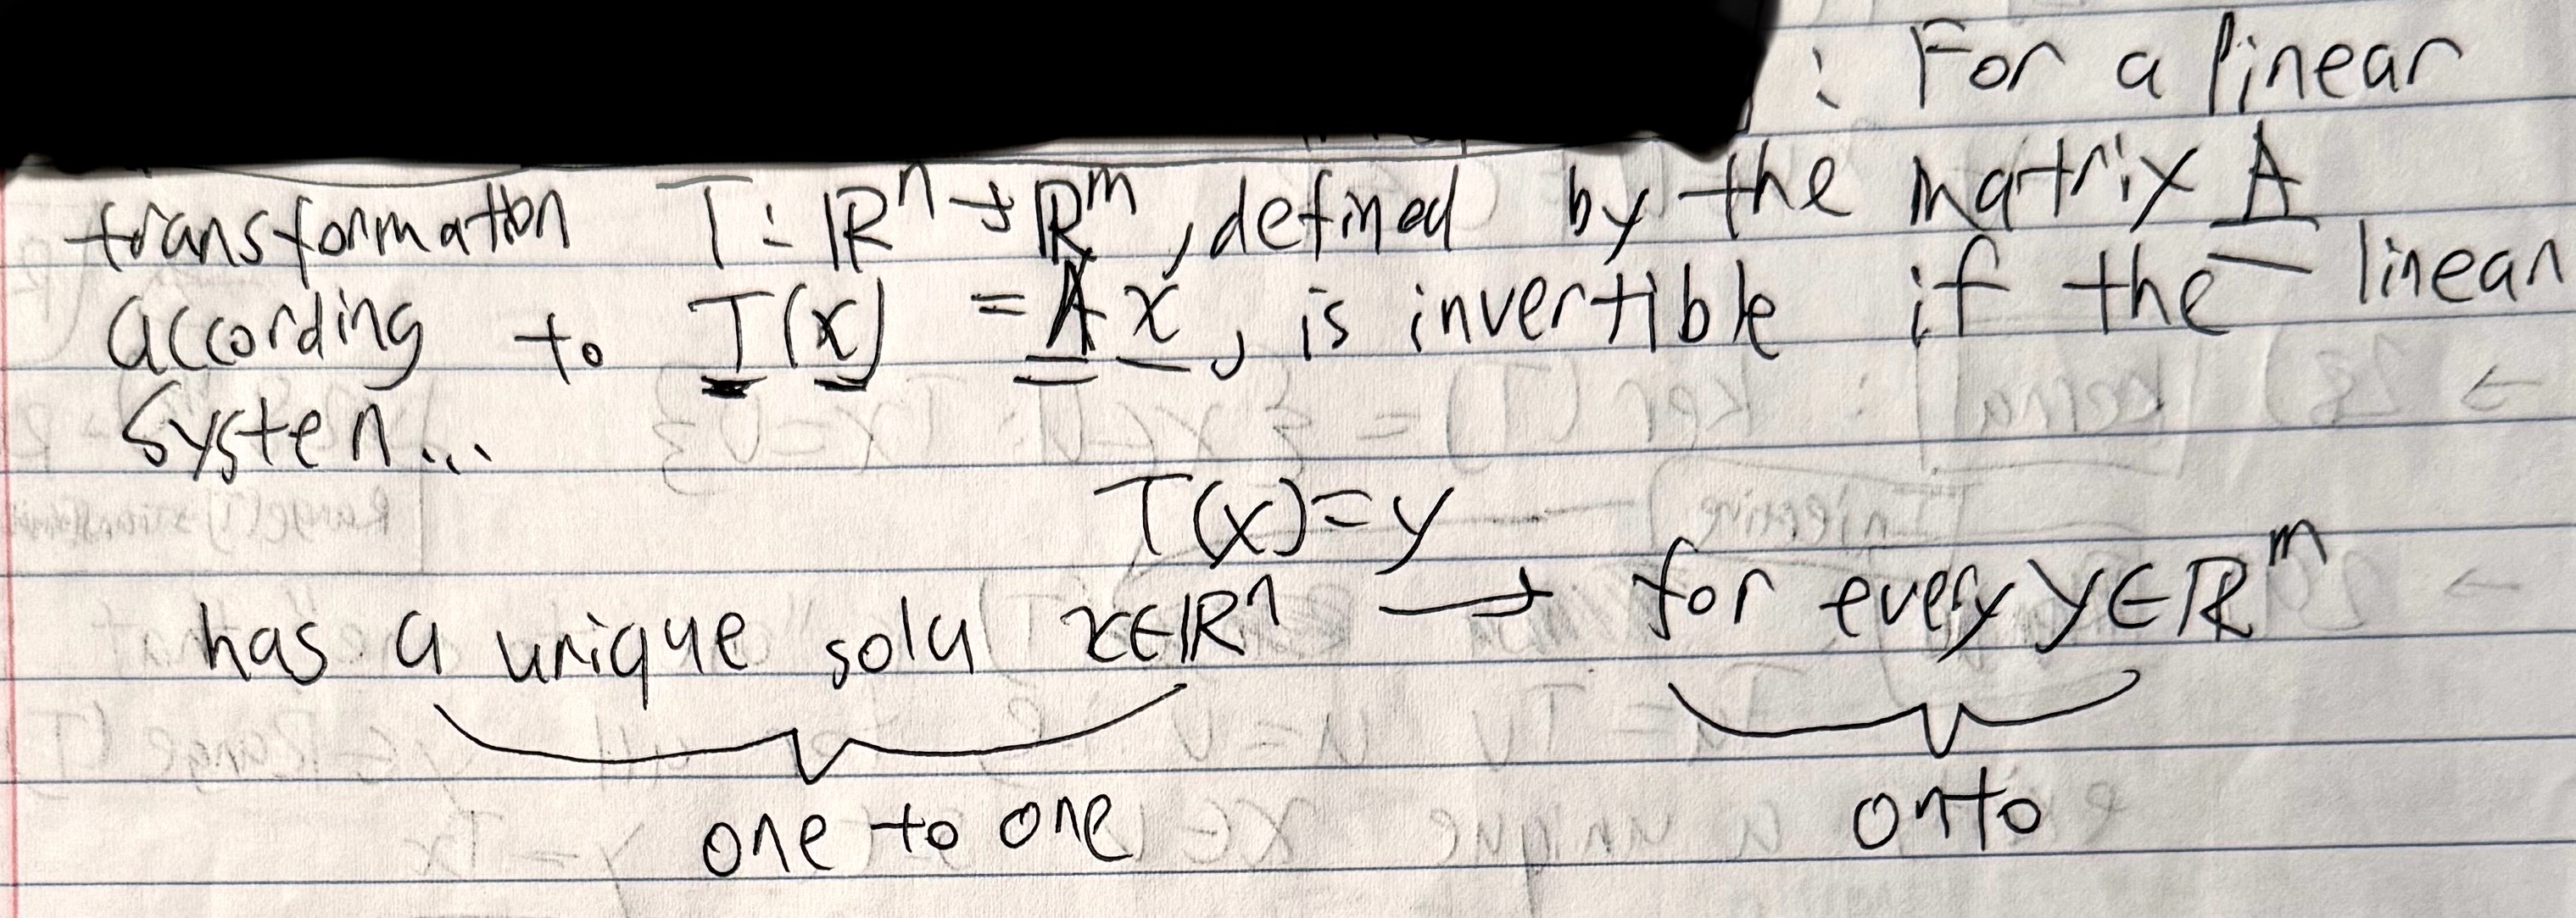 : For a linear
transformation T: ℝⁿ → ℝᵐ, defined by the matrix A
according to T(x) = A x, is invertible if the linear
System...
T(x)=y
has a unique soln x∈ℝⁿ → for every y∈ℝᵐ
one to one onto